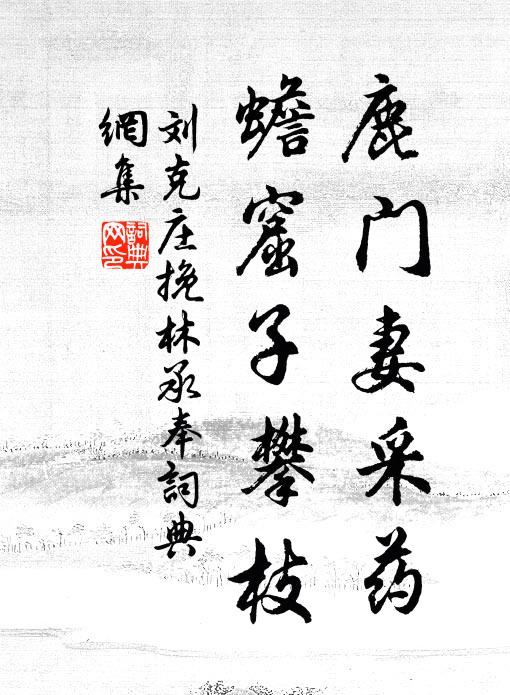 鹿门妻采药
蟾窟子攀枝
刘克庄挽林承奉詞典
網集
詞典网印